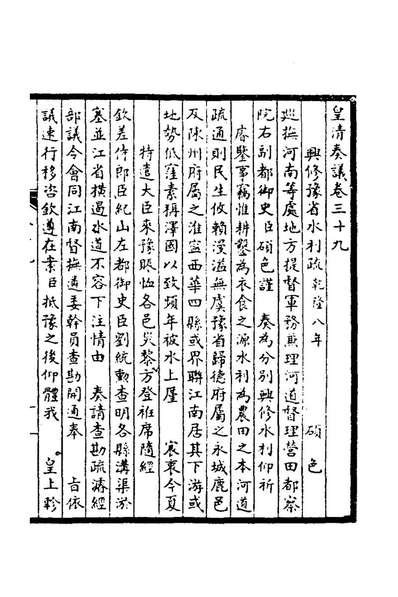 皇清奏議卷三十九
興修豫省水利疏 乾隆八年 碩色
巡撫河南等處地方提督軍務兼理河道督理營田都察
院右副都御史臣碩色謹 奏為分別興修水利仰祈
睿鑒事竊惟耕鑿為衣食之源水利為農田之本河道
疏通則民生攸賴漫溢無虞豫省歸德府屬之永城鹿邑
及陳州府屬之淮寧西華四縣或界聯江南居其下游或
地勢低窪素稱澤國以致頻年被水上厪 宸衷今夏
特遣大臣來豫賑恤各邑災黎方登袵席隨經
欽差侍郎臣紀山左都御史臣劉統勳查明各縣溝渠淤
塞並江省橫遏水道不容下注情由 奏請查勘疏濬經
部議令會同江南督撫遴委幹員查勘開通奉 旨依
議速行移咨欽遵在案臣抵豫之後仰體我 皇上軫